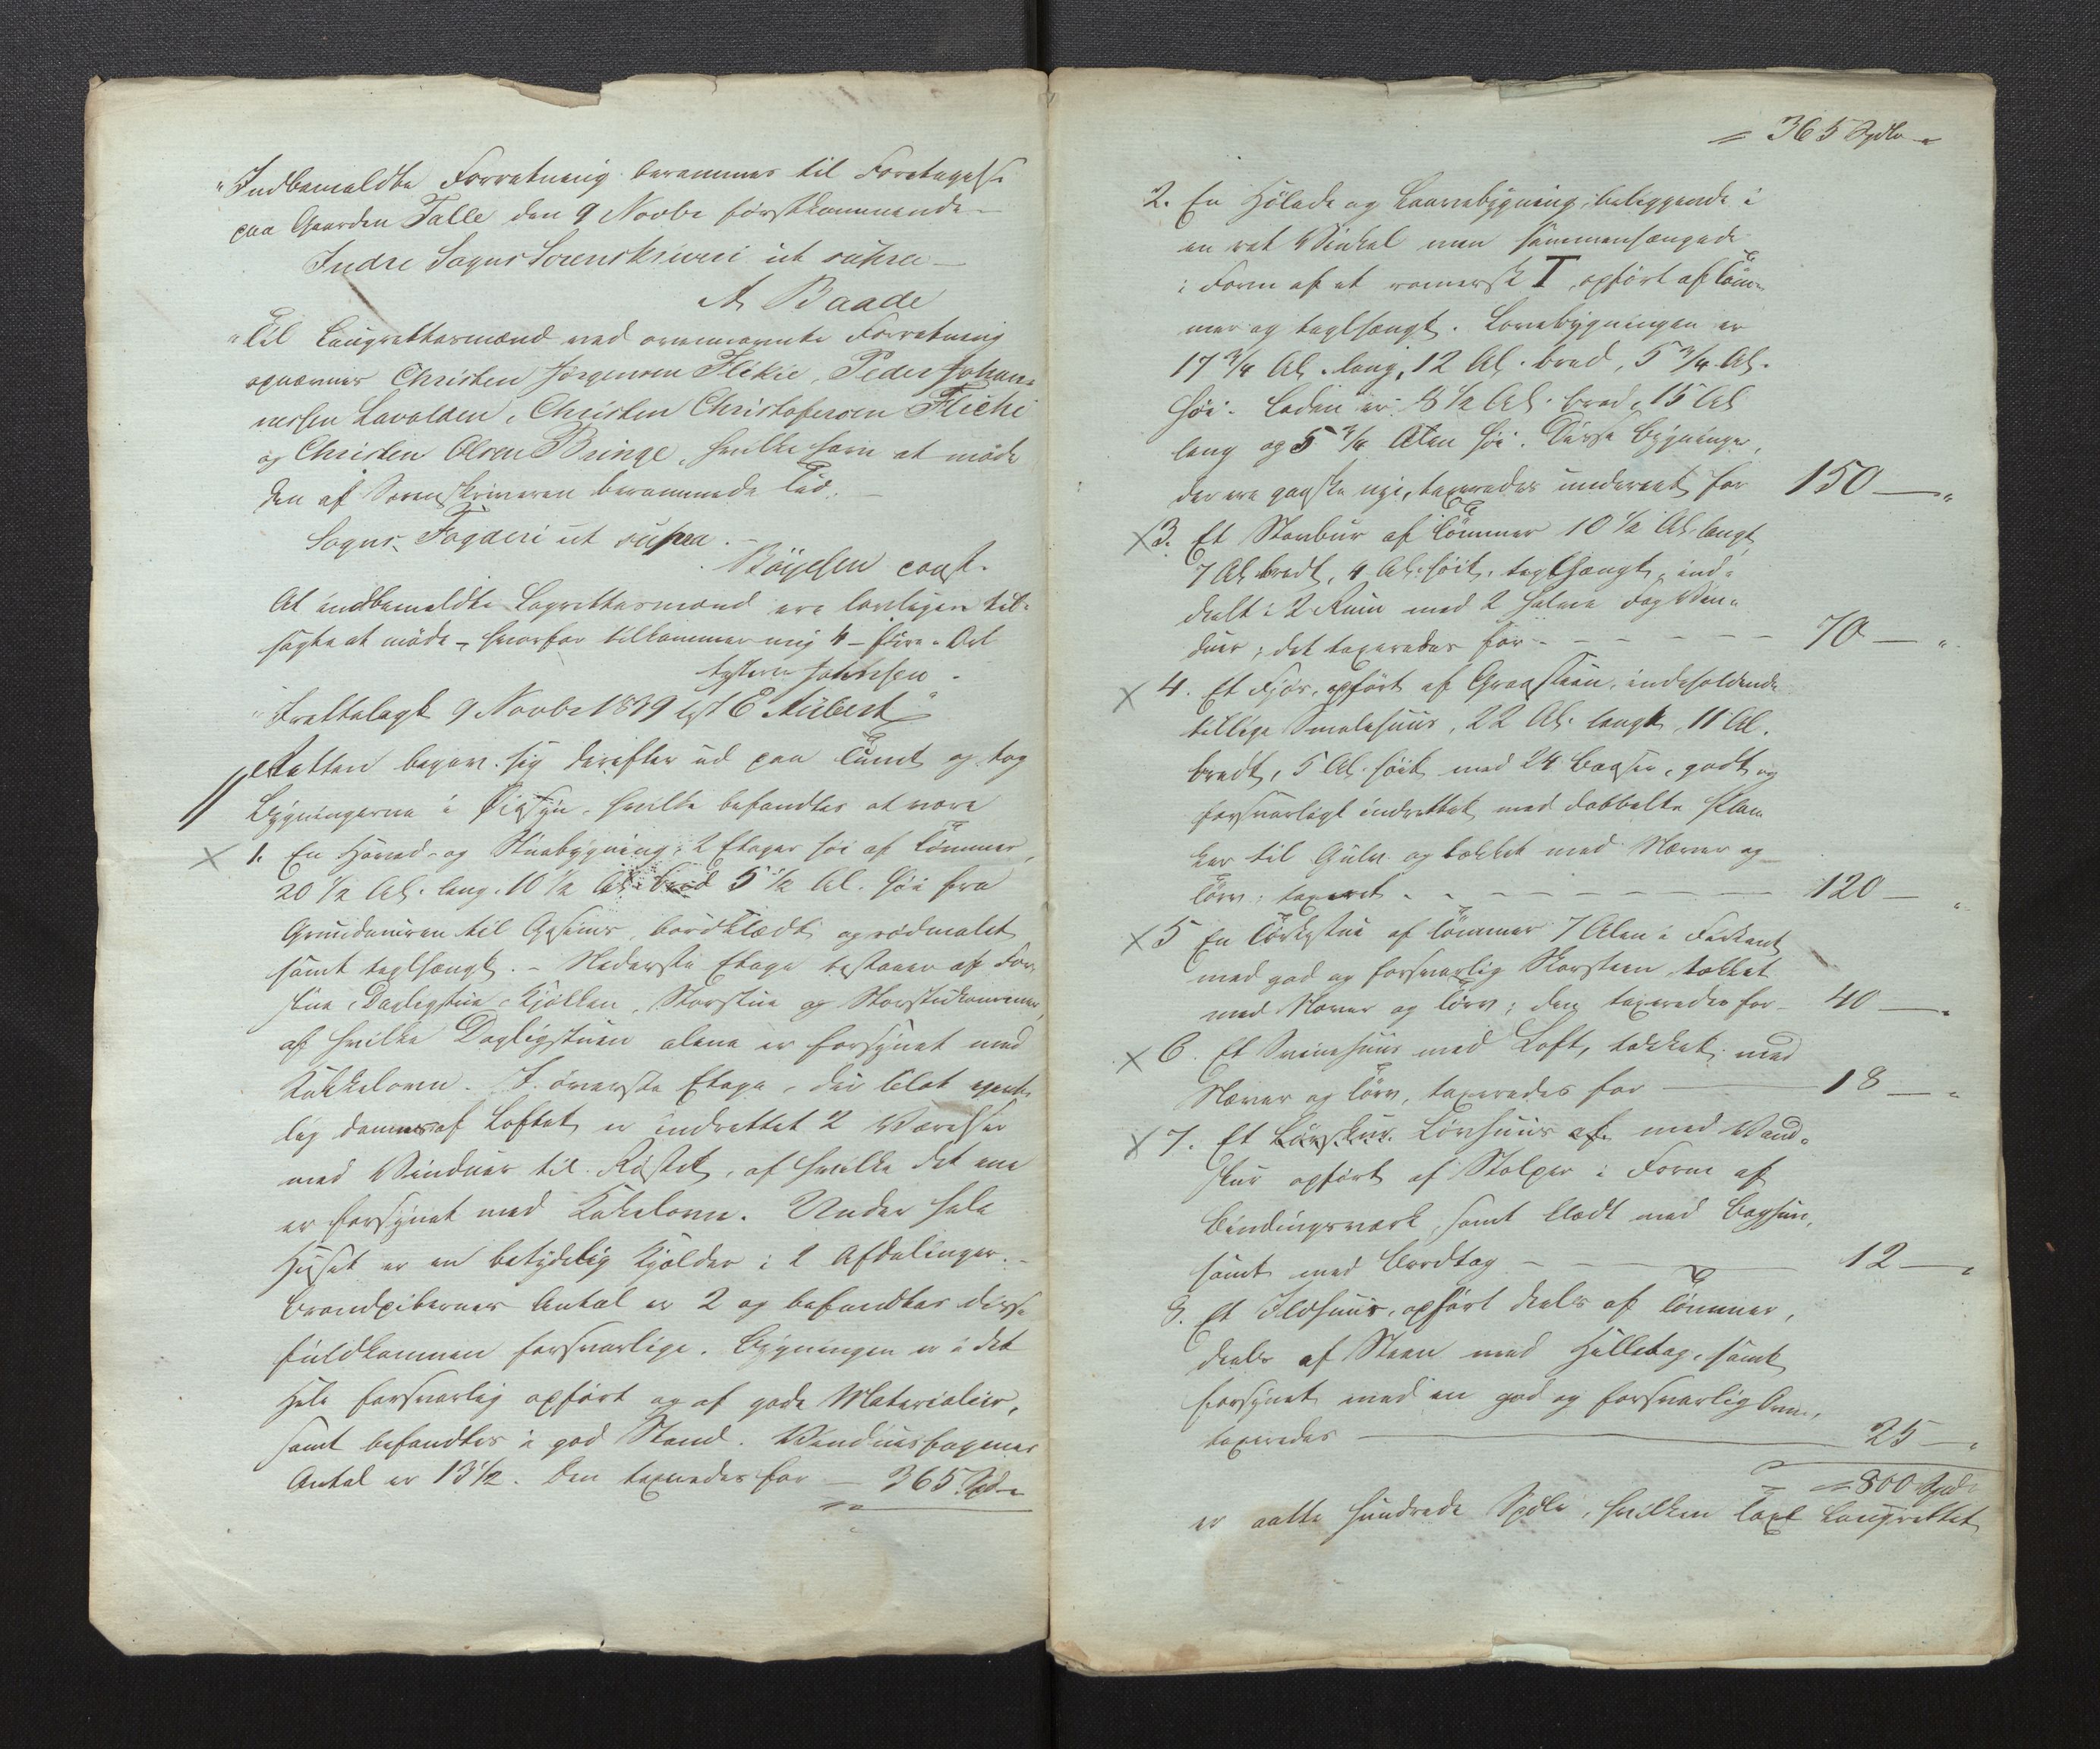 "Indbemeldte Forretning berammes til Foretagelse
paa Gaarden Talle den 9 Novbr førstkommende
Indre Sogns Sorenskriveri ut supra
A. Baade
"Til Laugrettesmænd ved ovennævnte Forretning
opnævnes Christen Jørgensen Flikie, Peder Johan-
nessen Lavolden, Christen Christofersen Fliche
og Christen Olsen Bringe, hvilke have at møde
den af Sorenskriveren berammede Tid.
Sogns Fogderi ut supra.
Böyesen const.
At indbemeldte Lagrettesmænd ere lovligen til-
sagte at møde, hvorfor tilkommer mig 4 - fire - Ort
Johnsen
"Fremlagt 9 Novbr 1839 E Aubert"
Retten begav sig derefter ud paa Tunet og tog
Bygningerne i Øiesyn, hvilke befandtes at være
1. En Hoved- og Stuebygning, 2 Etager høi af Tømmer,
20 1/2 Al. lang, 10 1/2 Al. bred 5 1/2 Al. høi fra
Grundmuren til Gesims, bordklædt og rødmalet
samt teglhængt. - Nederste Etage bestaaer af For-
stue, Dagligstue, Kjøkken, Storstue og Storstuekammer,
af hvilke Dagligstuen alene er forsynet med
Kakkelovn. I øverste Etage, der blot egent-
lig dannes af Loftet, er indrettet 2 Værelser
med Vinduer til Røstet, af hvilke det ene
er forsynet med Kakelovn. Under hele
Huset er en betydelig Kjelder i 2 Afdelinger. -
Brandpibernes Antal er 2 og befandtes disse
fuldkommen forsvarlige. Bygningen er i det
Hele forsvarlig opført og af gode Materialier,
samt befandtes i god Stand. Vinduesfagenes
Antal er 13 1/2. Den taxeredes for - 365 Spd
= 365 Spdlr -
2. En Hølade og Laavebygning, beliggende i
en ret Vinkel men sammenhængende
i Form af et romersk T, opført af Tøm-
mer og teglhængt. Lovebygningen er
17 3/4 Al. lang, 12 Al. bred, 5 3/4 Al.
høi. Laden er 8 1/2 Al. bred, 15 Al
lang og 5 3/4 Alen høi. Disse Bygninger,
der ere ganske nye, taxeredes undereet for 150 - "
3. Et Stabur af Tømmer 10 1/2 Al. langt,
7 Al. bredt, 4 Al. høit, teglhængt, ind-
deelt i 2 Rum med 2 halve Fag Vin-
duer; det taxeredes for - - - - - - 70 - "
4. Et Fjøs, opført af Graasteen, indeholdende
tillige Smalehuus, 22 Al. langt, 11 Al.
bredt, 5 Al. høit med 24 Baase, godt og
forsvarligt indrettet med dobbelte Plan-
ker til Gulv og tækket med Næver og
Tørv; taxeret - - - - - - 120 - "
5 En Tørkestue af Tømmer 7 Alen i Firkant
med god og forsvarlig Skorsteen, tækket
med Næver og Tørv; den taxeredes for - 40 - "
6. Et Svinehuus med Loft, tækket med
Næver og Tørv, taxeredes for - 18 - "
7. Et Løvskur Løvhuus af med Vand-
skur opført af Stolper i Form af
Bindingsværk, samt klædt med Baghun,
samt med Bordtag - - - 12 - "
8. Et Ildhuus, opført deels af Tømmer,
deels af Steen med Helletag, samt
forsynet med en god og forsvarlig Ovn,
taxeredes - 25 - "
= 800 Spdlr
er aatte hundrede Spdlr, hvilken Taxt Laugrettet